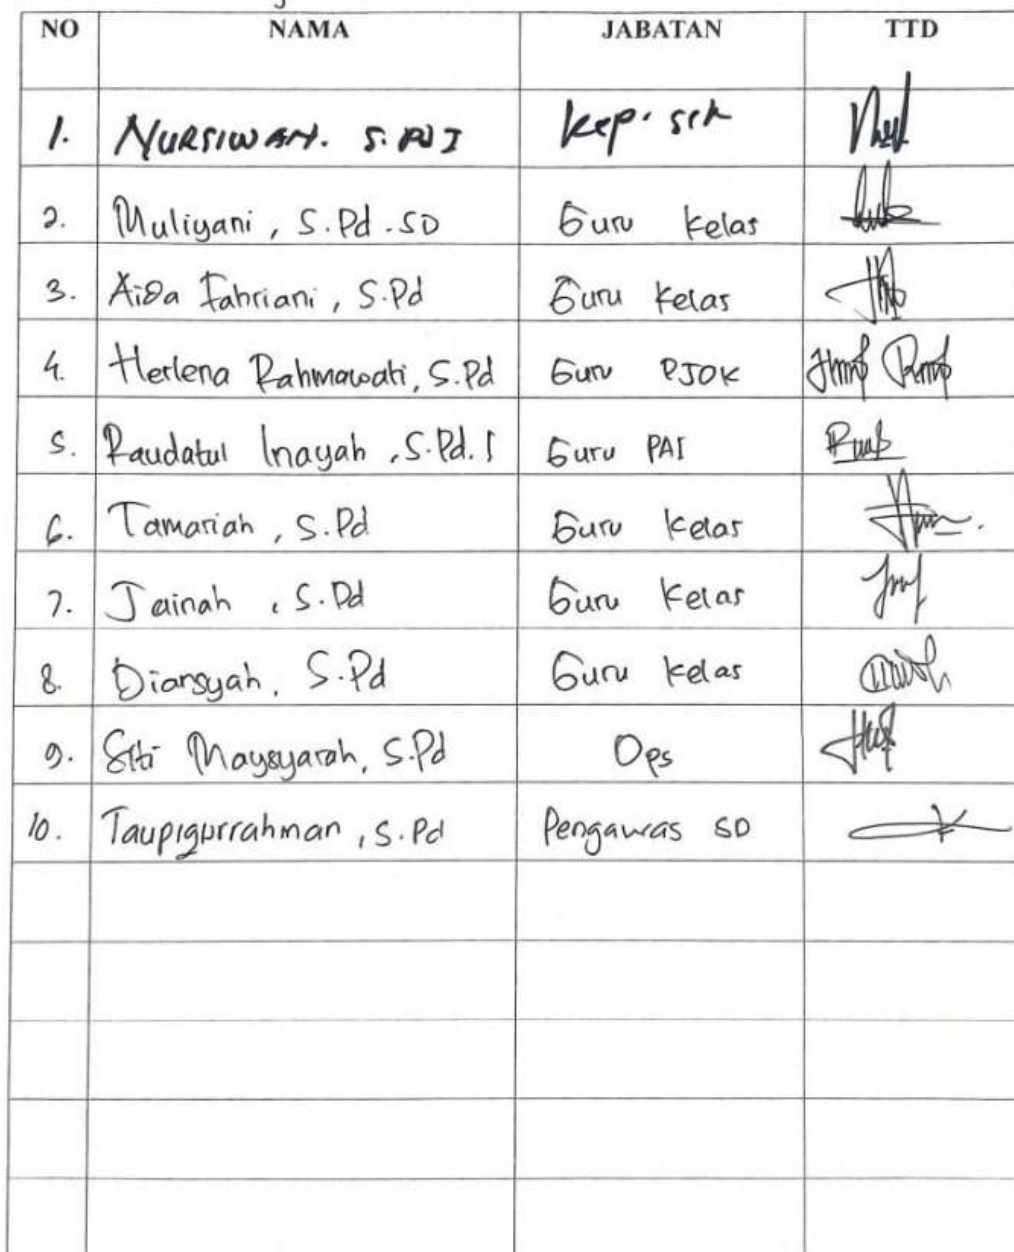 NO NAMA JABATAN TTD
1. NURSIWAN. S.PdI Kep. sek
2. Muliyani, S.Pd.SD Guru Kelas
3. Aida Fahriani, S.Pd Guru Kelas
4. Herlena Rahmawati, S.Pd Guru PJOK
5. Raudatul Inayah, S.Pd.I Guru PAI
6. Tamariah, S.Pd Guru Kelas
7. Jainah, S.Pd Guru Kelas
8. Diansyah, S.Pd Guru Kelas
9. Siti Maysyarah, S.Pd Ops
10. Taupiqurrahman, S.Pd Pengawas SD